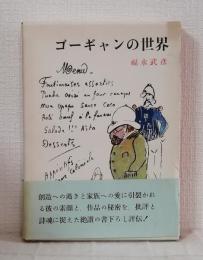 ゴーギャンの世界
福永武彦
Menu
Fritineuses assorties
Punta oursi au four canaques
Mon papa sauce coco
Roti boeuf à la
Salade !!! Aïta
Desserts
創造への過さと家族への愛に引裂かれ
る彼の素顔と、作品の秘密を、批評と
詩魂に捉えた絶讃の書下ろし評伝!